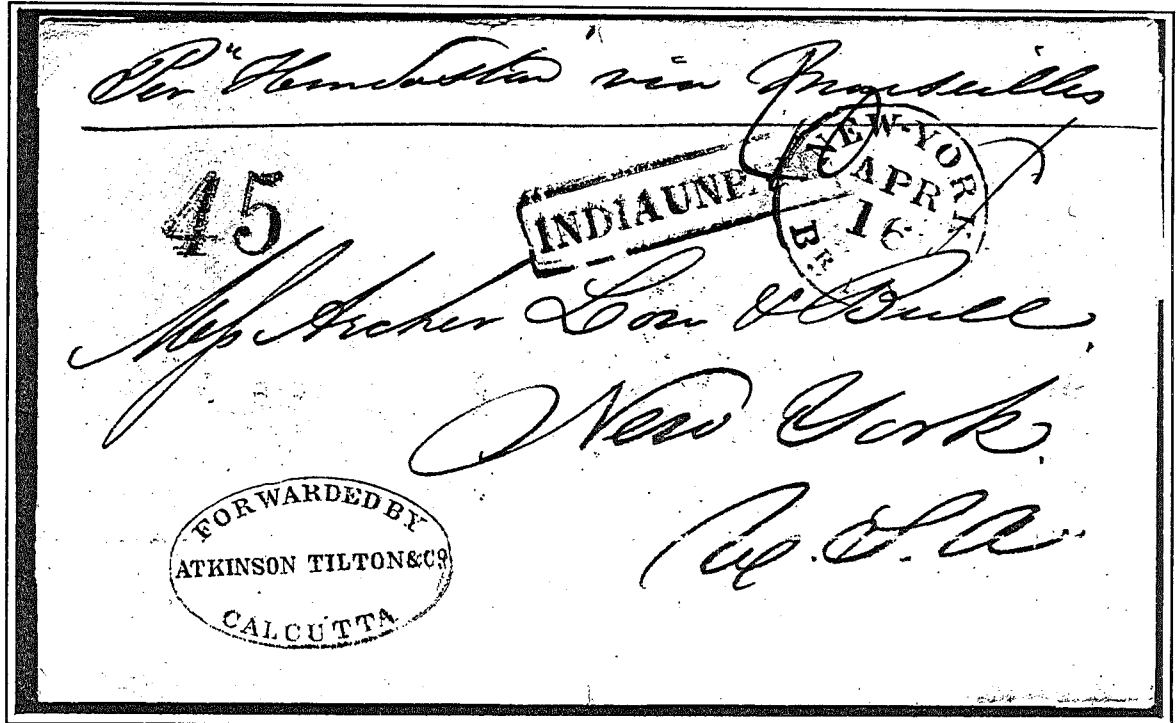 Per "Hindostan via Marseilles
45
INDIA UNP
NEW-YORK
APR
16
BR
Mess Archer Low & Bull,
New York.
U.S.A.
FORWARDED BY
ATKINSON TILTON & CO
CALCUTTA